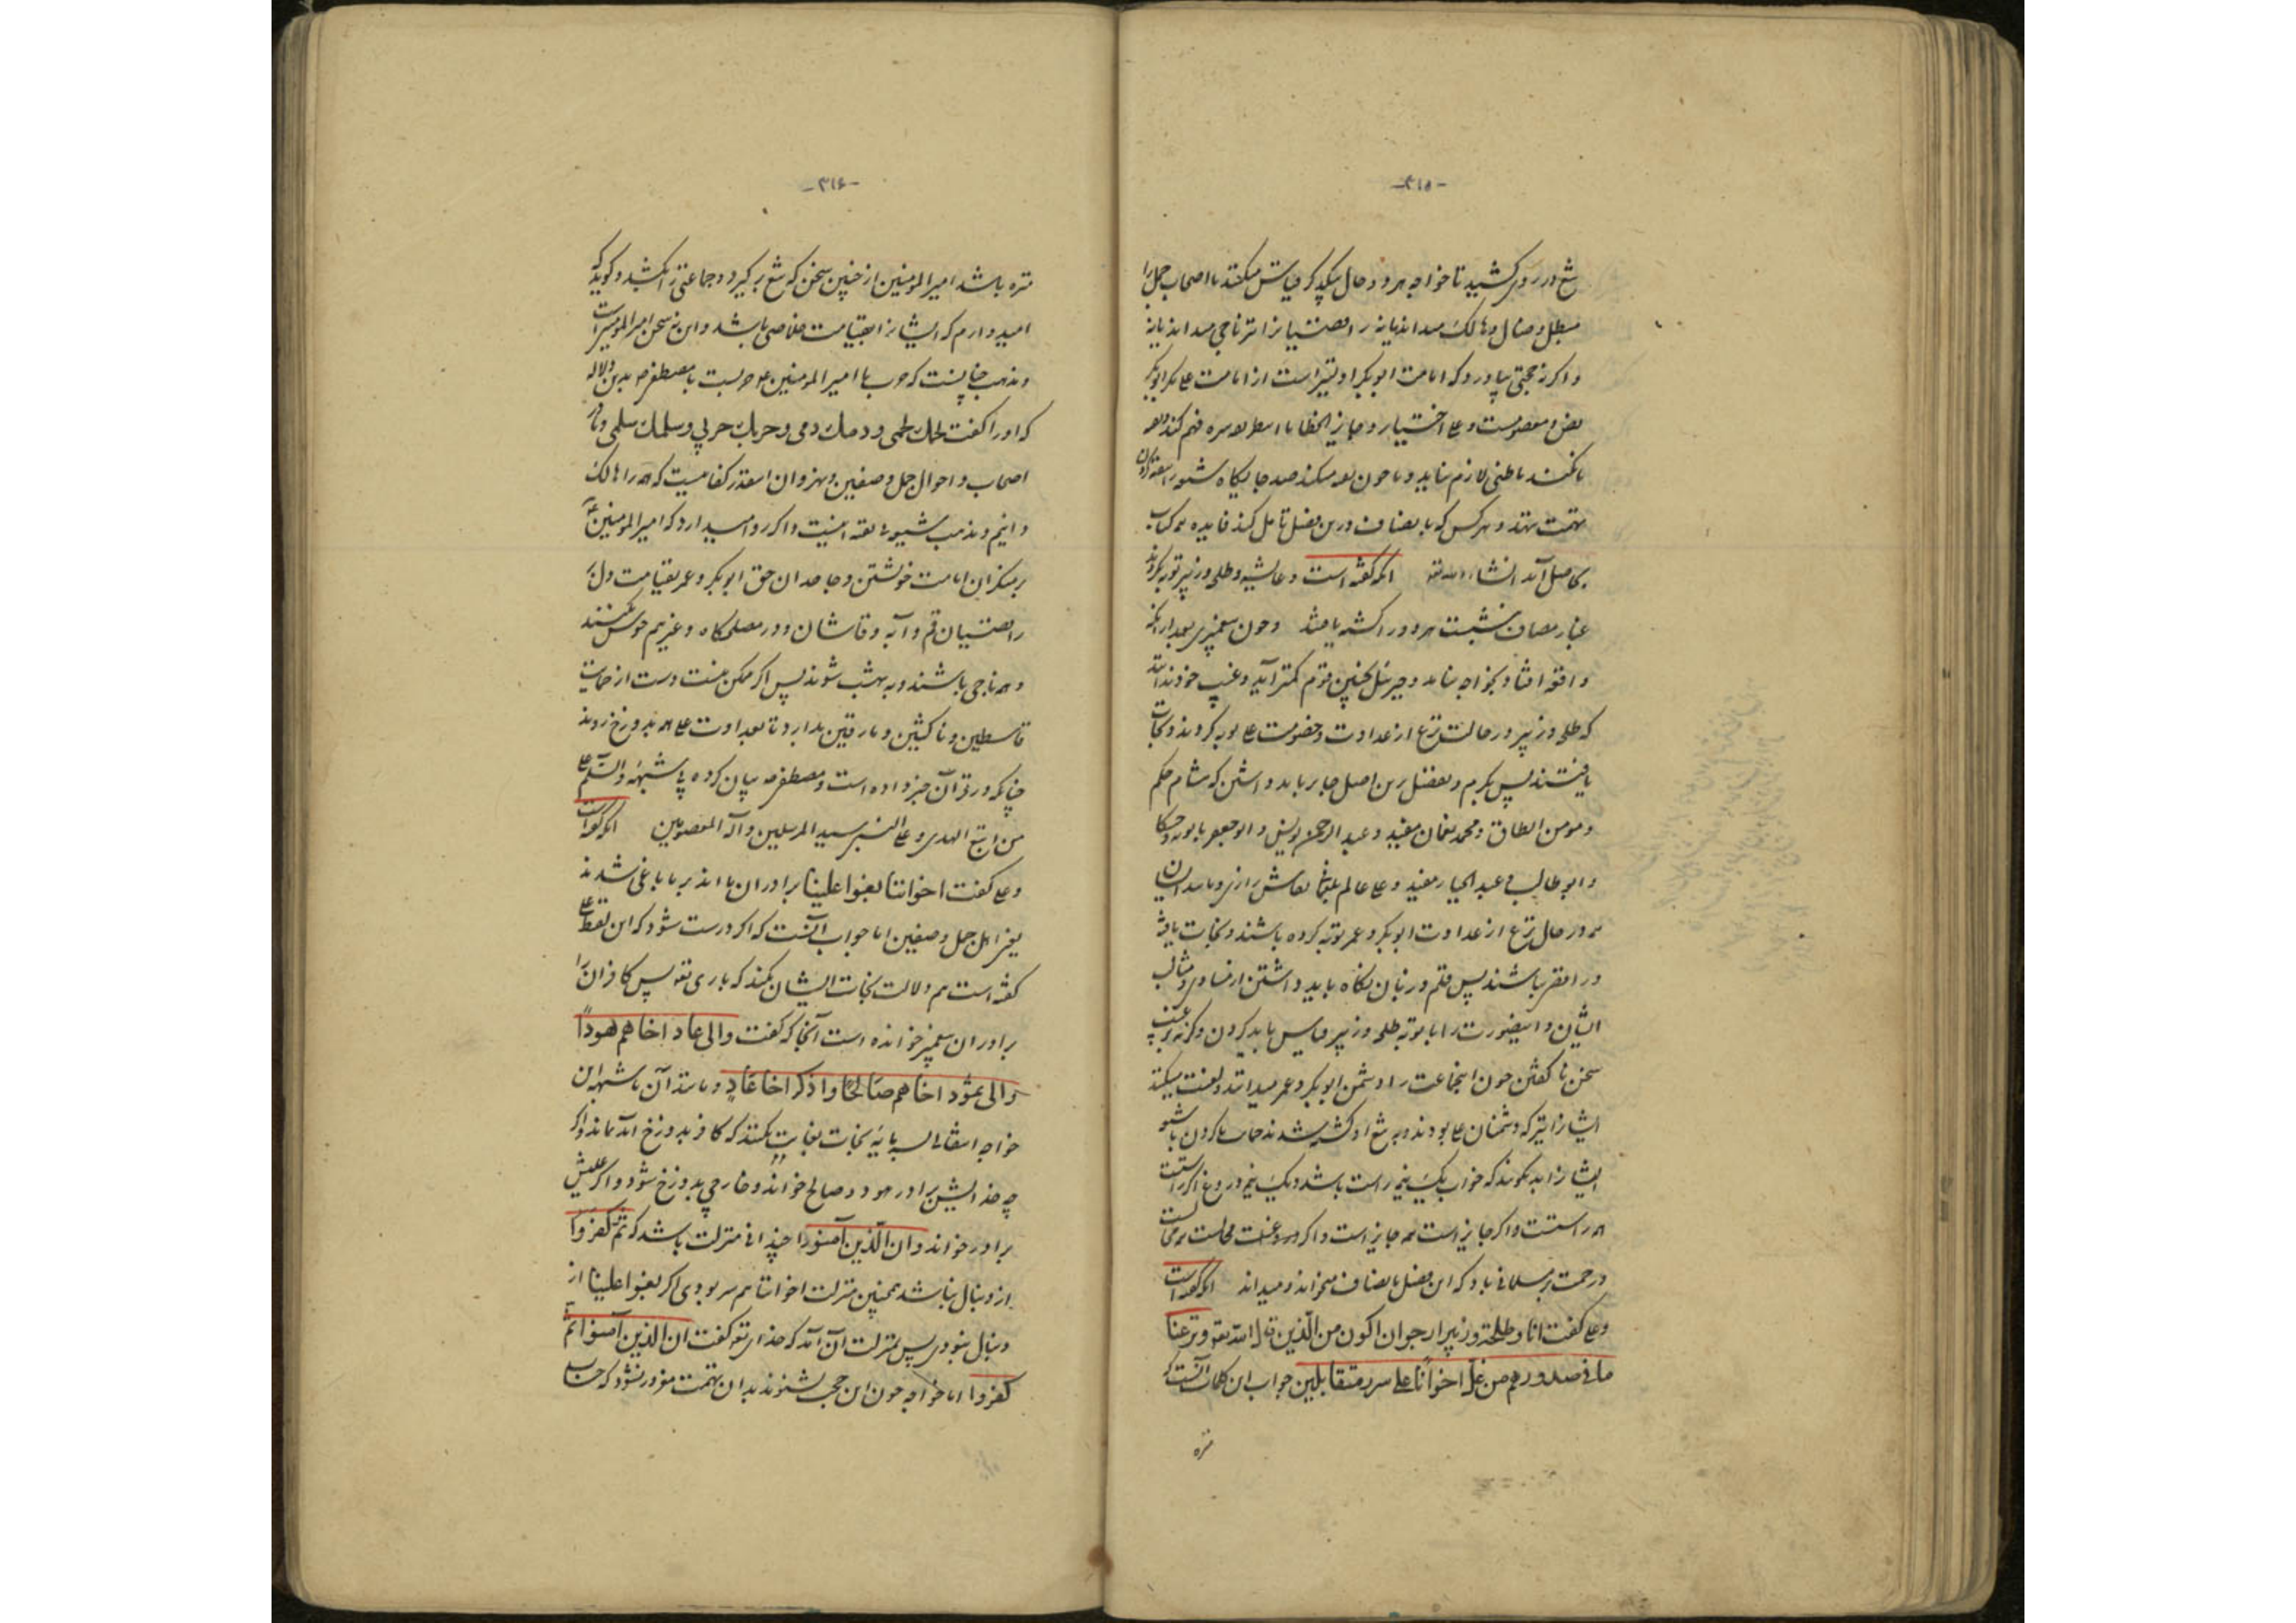 -۳۱۵-
تیغ در روی کشید تا خواجه هر دو حال نیکو بکند با اصحاب جمل را
مبطل و ضال و هالک میداند یا نه رافضیانرا نتر ناجی میداند یا نه
و اگر نه حجتی بیاورد که امامت ابوبکر اولیتر است از امامت علی مگر ابوبکر
نص و معصوست و علی اختیار و جایز الخطا تا فهم کند
تا نکند لازم نیاید و با چون میکند صد جایگاه
تهمت ننهد و هر کس که بانصاف درین فصل تامل کند فایده همه کتاب
بحاصل آید انشاءالله تعه آنکه گفته است و عایشه و طلحه و زبیر توبه کردند
غبار مصاف بنشست هر دو را کشته یافتند و چون پیغمبری بعد از آنکه
واقعه افتاد بخواجه نیاید و جبرئیل بچنین قوم کمتر آید و غیب خود نداند
که طلحه و زبیر در حالت نزع از عداوت و خصومت علی توبه کردند و نجات
یافتند پس بکرم و بفضل برین اصل جایز باید داشتن که هشام حکم
و مومن الطاق و محمد نعمان مفید و عبدالرحمن یونس و ابوجعفر بابویه و حسکا
و ابوطالب و عبدالجبار مفید و علی عالم نقاش رازی و مانند ایشان
همه در حال نزع از عداوت ابوبکر و عمر توبه کرده باشند و نجات یافته
و رافضی نباشند پس قلم و زبان نگاه باید داشتن از مساوی و مثالب
ایشان و اینصورت را با توبه طلحه و زبیر قیاس باید کردن و گرنه
سخن ناگفتن چون اینجماعت را دشمن ابوبکر و عمر میدانند و لعنت میکنند
ایشانرا نیز که دشمنان علی بودند و به تیغ او کشته شدند
ایشانرا بد نگویند که خواب یک نیمه راست باشد و یک نیمه دروغ اگر راست
همه راستست و اگر جایز است همه جایز است و اگر دروغست محالست همه محالست
و رحمت بر مسلمانی باد که این فصل بانصاف میخواند و میداند آنکه گفته است
و علی گفت انا و طلحة و زبیر ارجو ان اکون من الذین قال الله تعه و نزعنا
ما فی صدورهم من غل اخوانا علی سرر متقابلین جواب این کلمات آنست که
منزه
-۳۱۶-
منزه باشد امیرالمومنین از چنین سخن که تیغ برگیرد و جماعتی را بکشد و گوید که
امیدوارم که ایشانرا بقیامت خلاصی باشد و این نه سخن امیرالمومنین است
و مذهب چنانست که حرب با امیرالمومنین علی حربست با مصطفی بدین دلاله
که او را گفت لحمک لحمی و دمک دمی و حربک حربی و سلمک سلمی و
اصحاب و احوال جمل و صفین و نهروان اینقدر کفایست که همه را هالک
دانیم و مذهب شیعه بقه اینست و اگر روا میدارد که امیرالمومنین
بر منکران امامت خویشتن و جاحدان حق ابوبکر و عمر بقیامت دل بر
رافضیان قم و آبه و قاشان و در مصلحگاه و غیرهم خوش کنند
و همه ناجی باشند و به بهشت شوند پس اگر ممکن نیست دست از حمایت
قاسطین و ناکثین و مارقین بدارد تا بعداوت علی همه بدوزخ روند
چنانکه در قرآن خبر داده است و مصطفی بیان کرده بی شبهه والسلم علی
من اتبع الهدی و علی النبی سید المرسلین و آله المعصومین آنکه گفته است
و علی گفت اخواننا بغوا علینا برادران ما اند بر ما باغی شدند
یعنی اهل جمل و صفین اما جواب آنست که اگر درست شود که این لفظ علی
گفته است هم دلالت نجات ایشان نکند که باری تعه پس کافران را
برادران پیغمبر خوانده است آنجا که گفت والی عاد اخاهم هودا
والی ثمود اخاهم صالحا واذکر اخا عاد و مانند آن تا شبهه این
خواجه نجات نیابت نکنند که کافر بدوزخ اند و اگر
چه خدا ایشان برادر هود و صالح خواند و خارجی بدوزخ شود و اگر علیش
برادر خواند و ان الذین آمنوا چندانی منزلت باشد که ثم کفروا
از دنبال نباشد همچنین منزلت اخواننا هم سر بودی اگر بغوا علینا از
دنبال نبودی پس بمنزلت آن آمد که خدای تعه گفت ان الذین آمنوا ثم
کفروا اما خواجه چون این حجت بشنوند بدان تهمت مغرور نشود که حساب